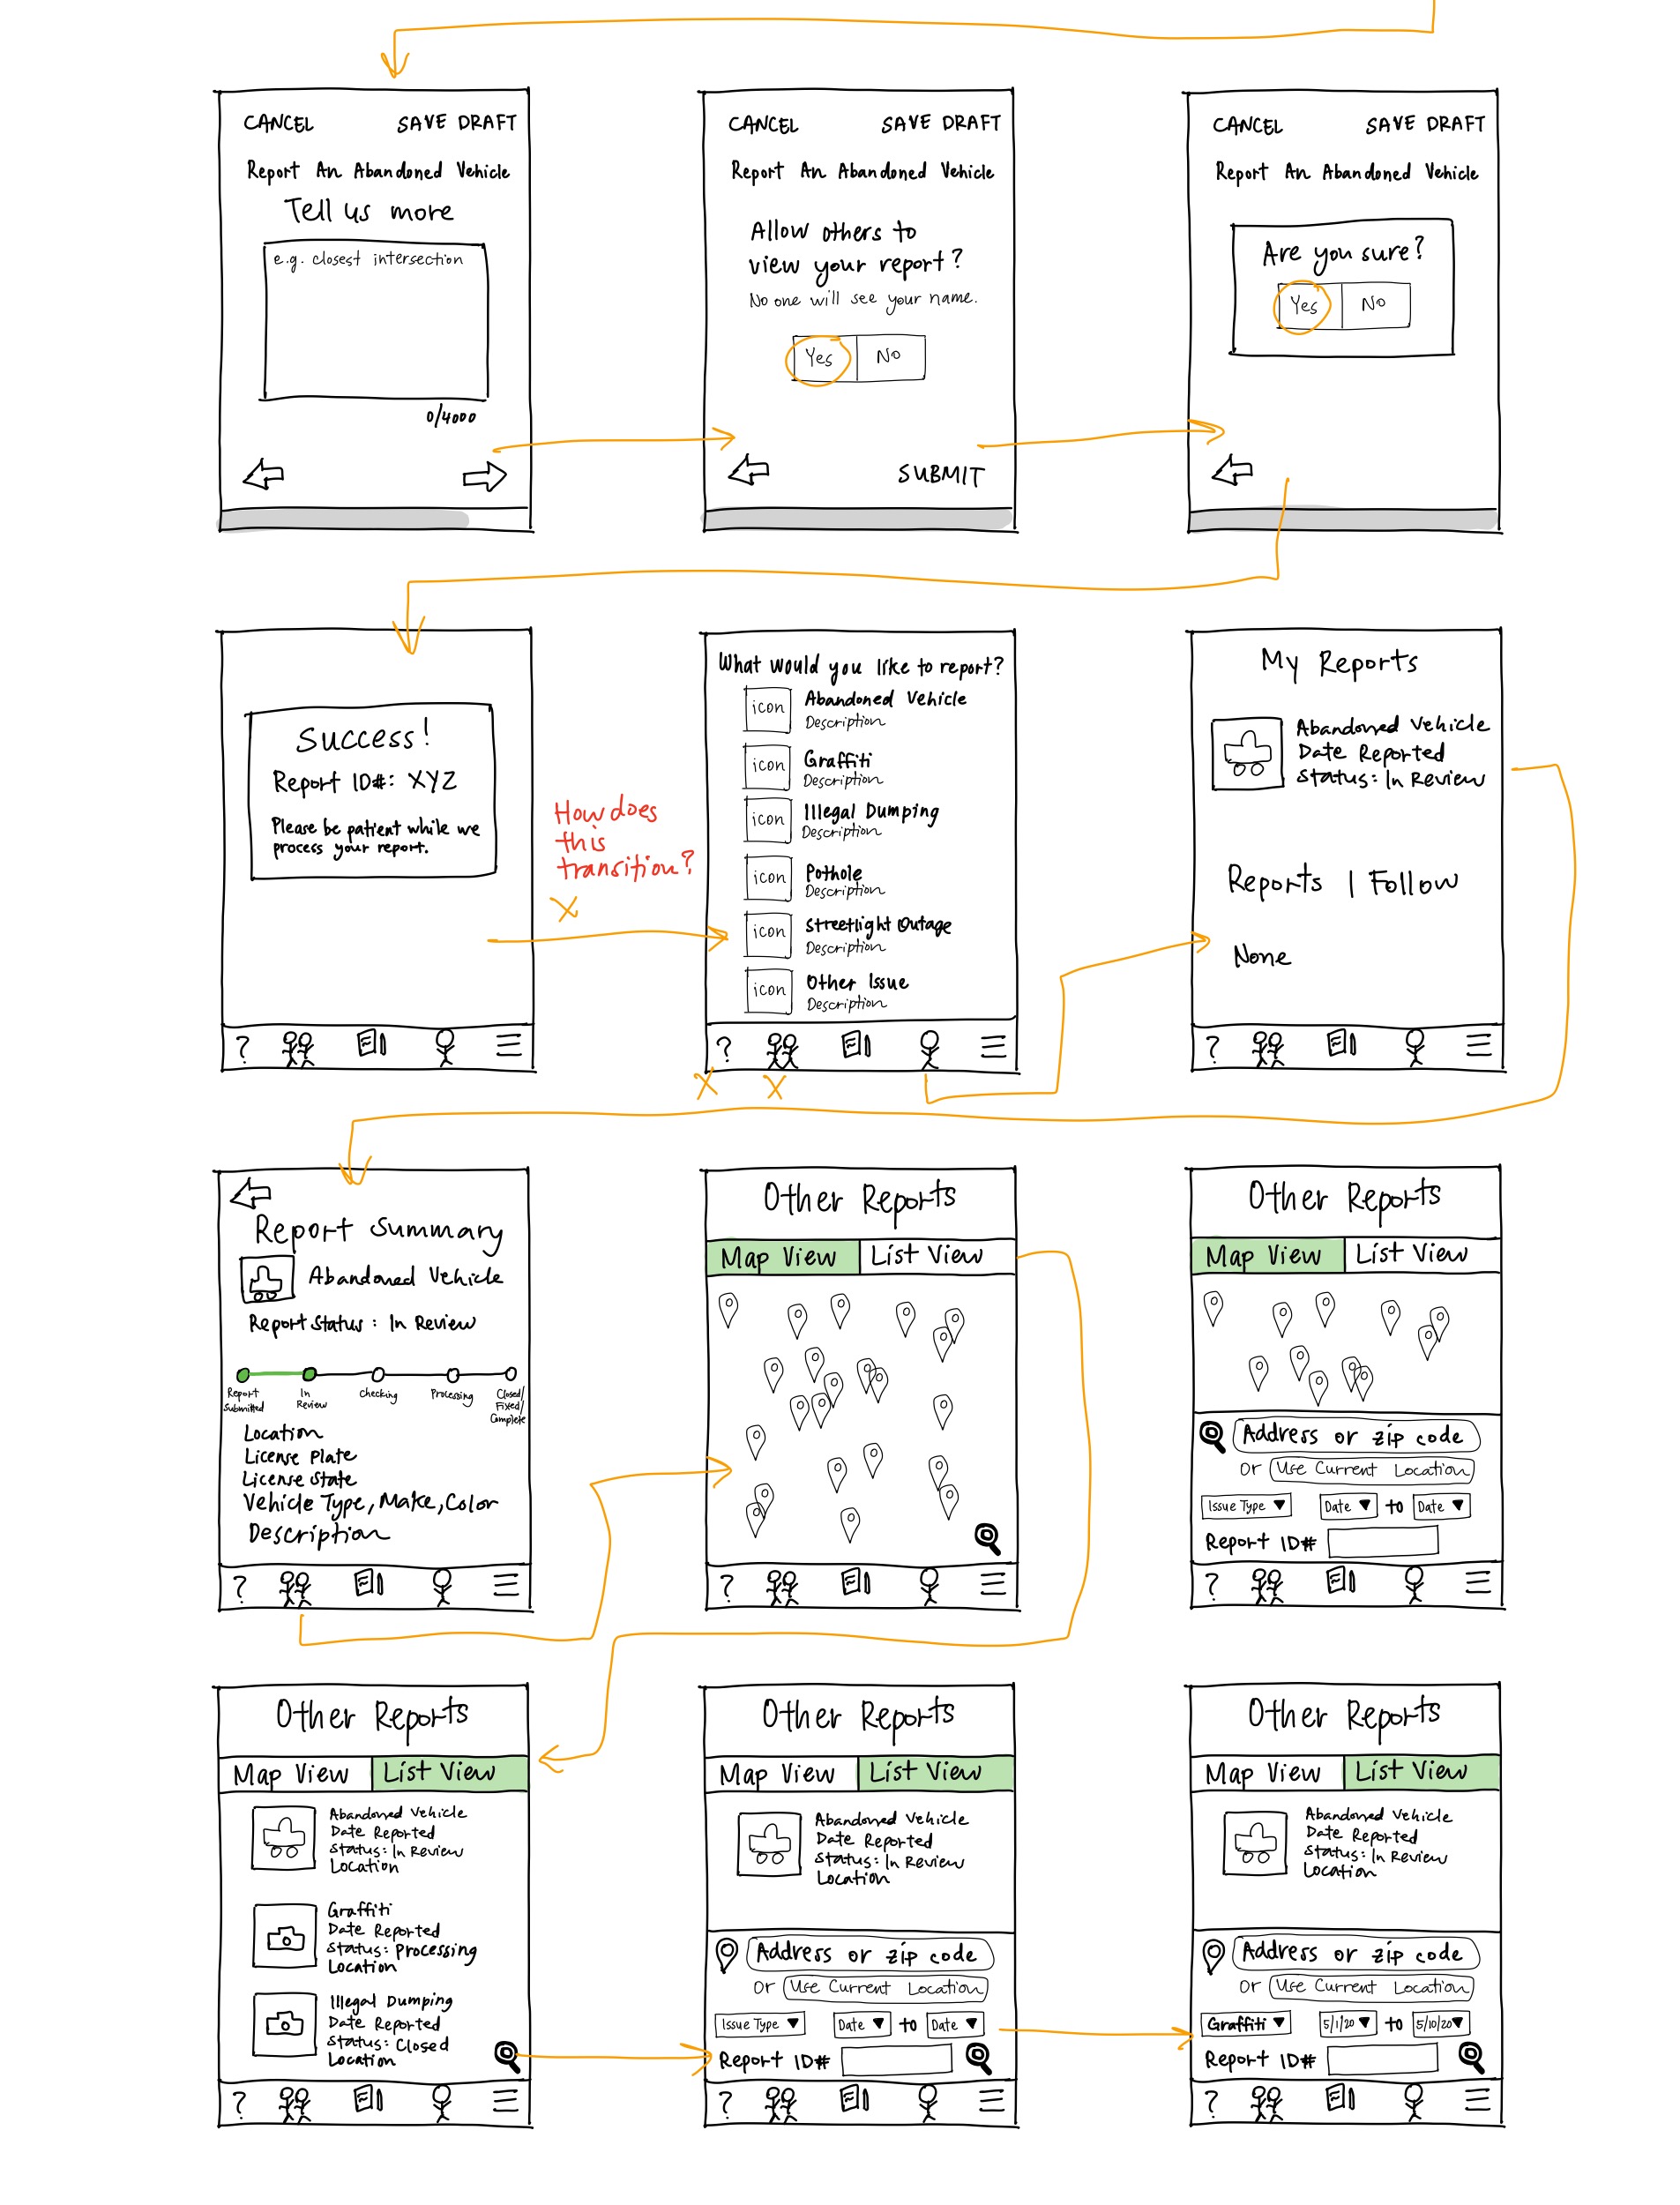 CANCEL SAVE DRAFT
Report An Abandoned Vehicle
Tell us more
e.g. closest intersection
0/4000
CANCEL SAVE DRAFT
Report An Abandoned Vehicle
Allow others to
view your report?
No one will see your name.
Yes No
SUBMIT
CANCEL SAVE DRAFT
Report An Abandoned Vehicle
Are you sure?
Yes No
Success!
Report ID#: XYZ
Please be patient while we
process your report.
?
How does
this
transition?
X
What would you like to report?
icon Abandoned Vehicle
Description
icon Graffiti
Description
icon Illegal Dumping
Description
icon Pothole
Description
icon Streetlight Outage
Description
icon Other Issue
Description
?
X X
My Reports
Abandoned Vehicle
Date Reported
Status: In Review
Reports I Follow
None
?
Report Summary
Abandoned Vehicle
Report Status: In Review
Report Submitted
In Review
Checking
Processing
Closed/
Fixed/
Complete
Location
License Plate
License State
Vehicle Type, Make, Color
Description
?
Other Reports
Map View List View
?
Other Reports
Map View List View
Address or zip code
or Use Current Location
Issue Type Date to Date
Report ID#
?
Other Reports
Map View List View
Abandoned Vehicle
Date Reported
Status: In Review
Location
Graffiti
Date Reported
Status: Processing
Location
Illegal Dumping
Date Reported
Status: Closed
Location
?
Other Reports
Map View List View
Abandoned Vehicle
Date Reported
Status: In Review
Location
Address or zip code
or Use Current Location
Issue Type Date to Date
Report ID#
?
Other Reports
Map View List View
Abandoned Vehicle
Date Reported
Status: In Review
Location
Address or zip code
or Use Current Location
Graffiti 5/1/20 to 5/10/20
Report ID#
?